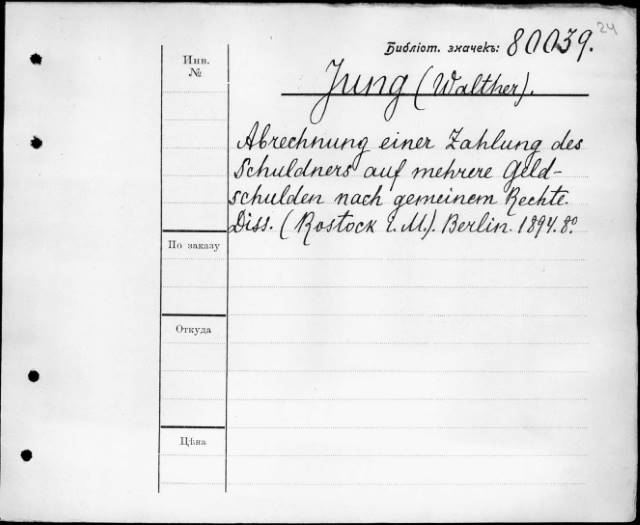 24
Библіот. значекъ: 80039.
Инв.
№
Jung (Walther).
Abrechnung einer Zahlung des
Schuldners auf mehrere Geld-
schulden nach gemeinem Rechte.
Diss. (Rostock i. M.). Berlin. 1894. 8°
По заказу
Откуда
Цѣна